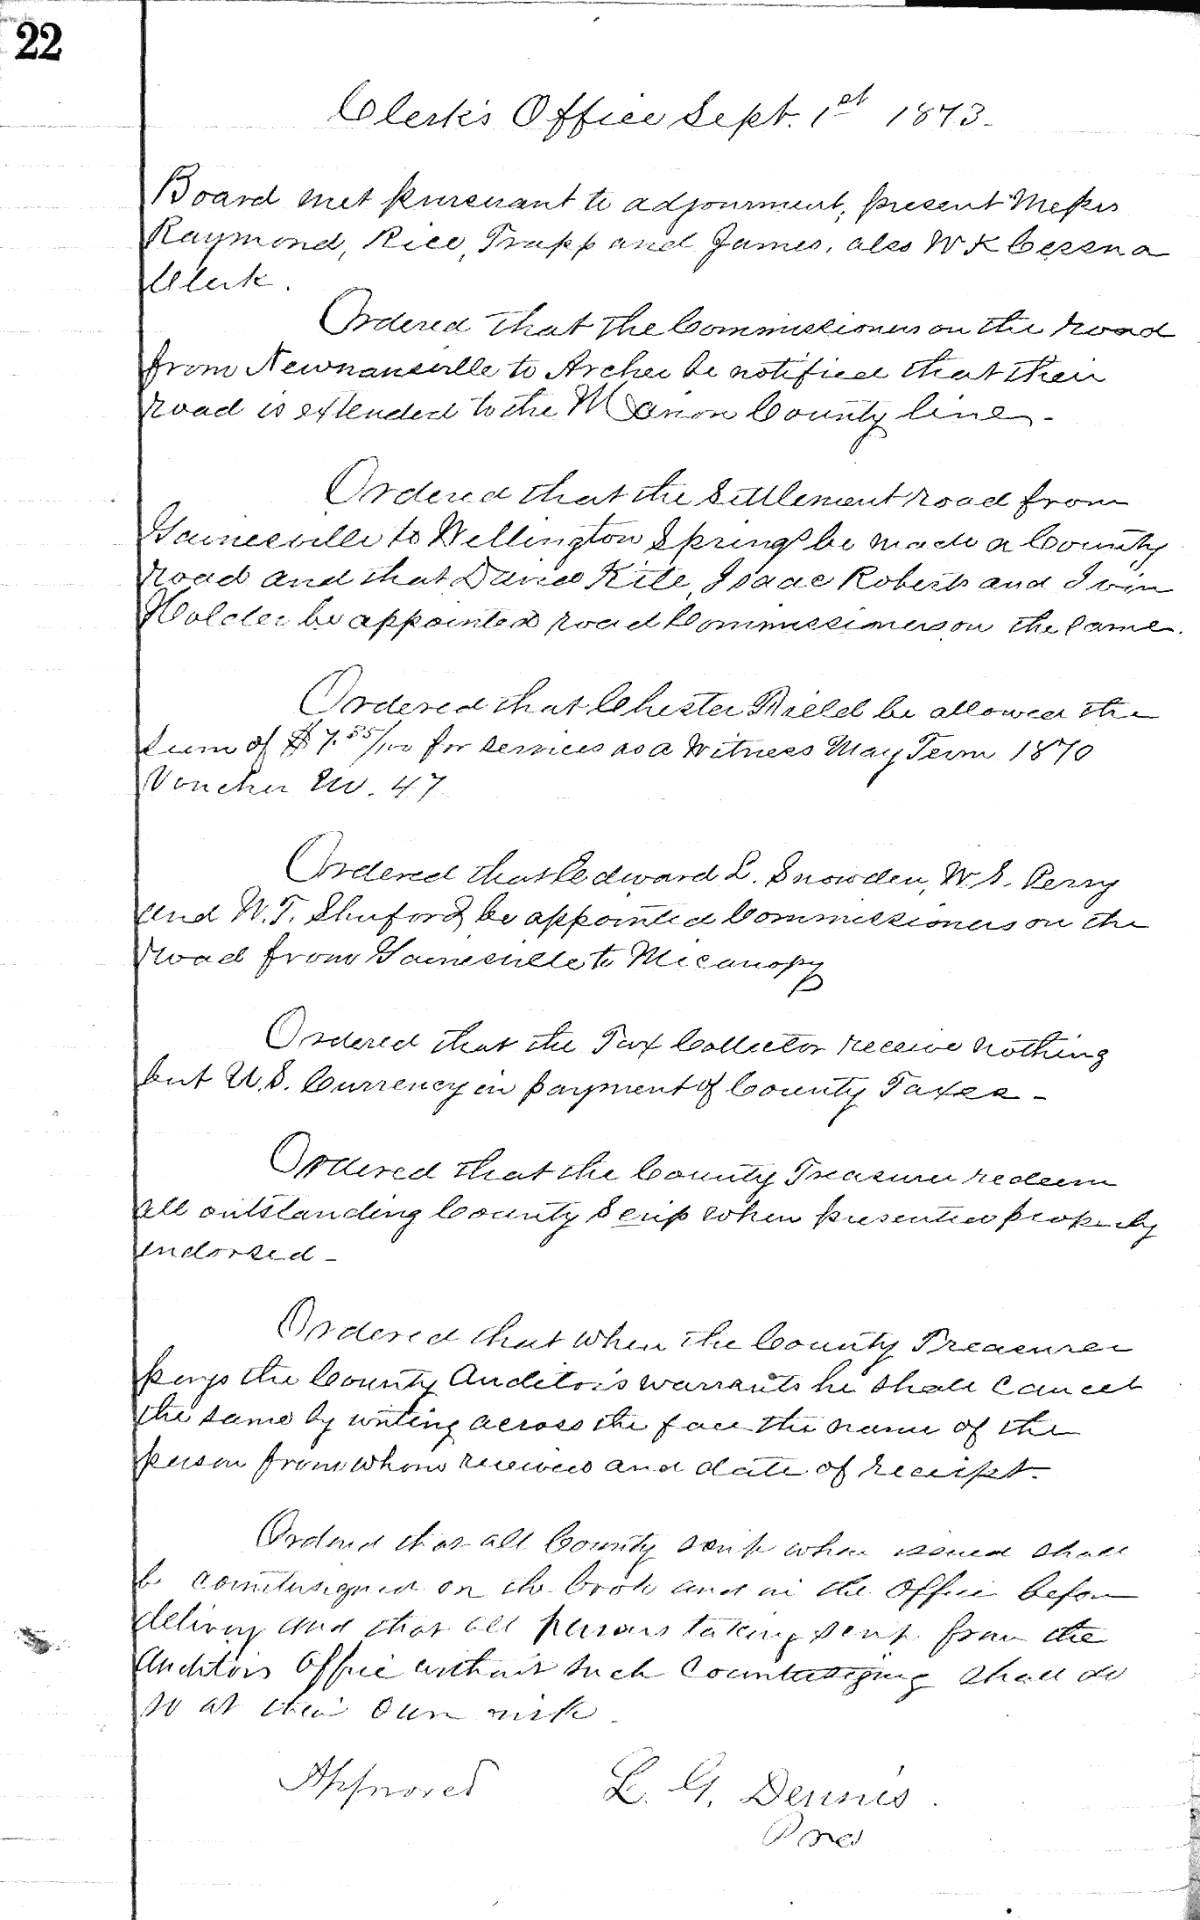 22
Clerk's Office Sept. 1st 1873.
Board met pursuant to adjournment, present Messrs
Raymond, Rice, Trapp and James, also W K Cessna
Clerk.
Ordered that the Commissioners on the road
from Newnansville to Archer be notified that their
road is extended to the Marion County line -
Ordered that the Settlement road from
Gainesville to Wellington Spring be made a County
road and that David Kite, Isaac Roberts and Irvin
Holder be appointed road Commissioners on the same.
Ordered that Chester be allowed the
sum of $7.35/100 for services as a Witness May Term 1870
Voucher No. 47
Ordered that Edward L. Snowden, W. S. Perry
and W. T. Shuford be appointed Commissioners on the
road from Gainesville to Micanopy
Ordered that the Tax Collector receive nothing
but U.S. Currency in payment of County Taxes -
Ordered that the County Treasurer redeem
all outstanding County Scrip when presented properly
endorsed -
Ordered that when the County Treasurer
pays the County Auditor's warrants he shall cancel
the same by writing across the face the name of the
person from whom received and date of receipt.
Ordered that all County scrip when issued shall
be countersigned on the book and in the office before
delivery and that all persons taking scrip from the
Auditors office without such countersigning shall do
so at their own risk.
Approved L. G. Dennis.
Pres